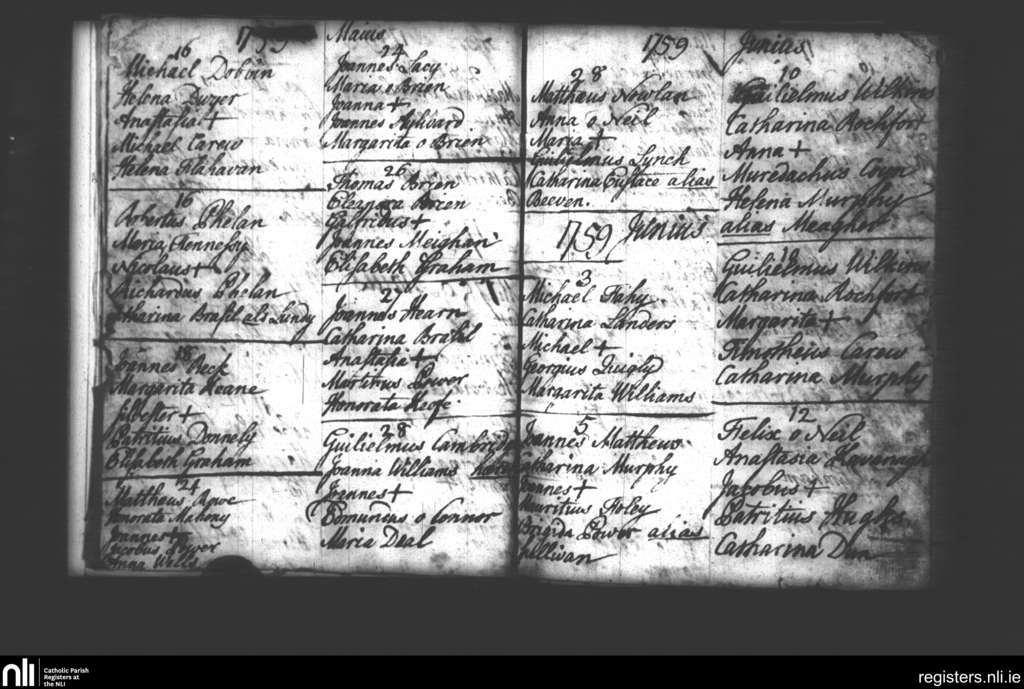 1759 Maius
16
Michael Dobbin
Helena Dwyer
Anastatia +
Michael Carew
Helena Flahavan
16
Robertus Phelan
Maria Hennessy
Nicolaus +
Richardus Phelan
Catharina Brasil als Lundy
18
Joannes Peck
Margarita Keane
+
Patritius Donnely
Elisabeth Graham
24
Mattheus Agwe
Honorata Mahony
Joannes +
Jacobus Power
Anna Wells
24
Joannes Lacy
Maria o Brien
Joanna +
Joannes Ayhvard
Margarita o Brien
26
Thomas Brien
Eleanora Breen
Galfridus +
Joannes Meighan
Elisabeth Graham
27
Joannes Hearn
Catharina Brasil
Anastatia +
Martinus Power
Honorata Keofe
28
Guilielmus Cambridge
Joanna Williams
Joannes +
Edmundus o Connor
Maria Deal
1759 Junius
28
Mattheus Nowlan
Anna o Neil
Maria +
Guilielmus Lynch
Catharina Eustace alias
Beeven.
1759 Junius
3
Michael Fahy
Catharina Landers
Michael +
Georgius Quigly
Margarita Williams
5
Joannes Matthews
Catharina Murphy
Joannes +
Mauritius Foley
Brigida Power alias
Sullivan
10
Guilielmus Wilkins
Catharina Rochfort
Anna +
Muredachus Coyn
Helena Murphy
alias Meagher
Guilielmus Wilkins
Catharina Rochfort
Margarita +
Timotheus Carew
Catharina Murphy
12
Felix o Neil
Anastasia Kavenagh
Jacobus +
Patritius Hughs
Catharina Dun
nli
Catholic Parish
Registers at
the NLI
registers.nli.ie